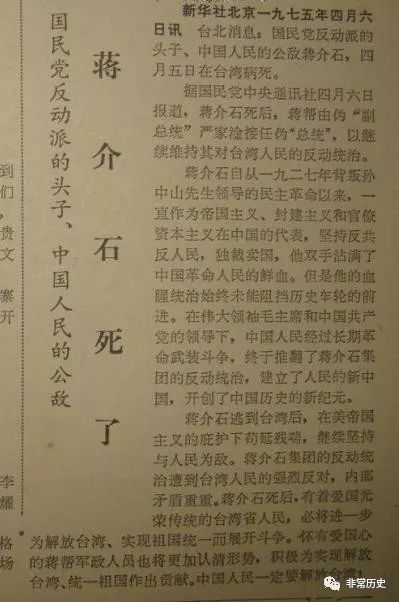 国民党反动派的头子、中国人民的公敌
蒋介石死了
新华社北京一九七五年四月六
日讯 台北消息：国民党反动派的
头子、中国人民的公敌蒋介石，四
月五日在台湾病死。
据国民党中央通讯社四月六日
报道，蒋介石死后，蒋帮由伪“副
总统”严家淦接任伪“总统”，以继
续维持其对台湾人民的反动统治。
蒋介石自从一九二七年背叛孙
中山先生领导的民主革命以来，一
直作为帝国主义、封建主义和官僚
资本主义在中国的代表，坚持反共
反人民，独裁卖国，他双手沾满了
中国革命人民的鲜血。但是他的血
腥统治始终未能阻挡历史车轮的前
进。在伟大领袖毛主席和中国共产
党的领导下，中国人民经过长期革
命武装斗争，终于推翻了蒋介石集
团的反动统治，建立了人民的新中
国，开创了中国历史的新纪元。
蒋介石逃到台湾后，在美帝国
主义的庇护下苟延残喘，继续坚持
与人民为敌。蒋介石集团的反动统
治遭到台湾人民的强烈反对，内部
矛盾重重。蒋介石死后，有着爱国光
荣传统的台湾省人民，必将进一步
为解放台湾、实现祖国统一而展开斗争。怀有爱国心
的蒋帮军政人员也将更加认清形势，积极为实现解放
台湾、统一祖国作出贡献。中国人民一定要解放台湾！
到
们
，
贵
文
寨
开
李
耀
格
场
非常历史